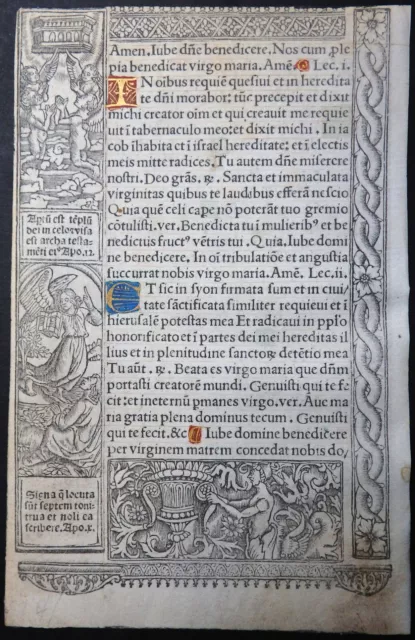 Amen. Iube dñe benedicere. Nos cum ple
pia benedicat virgo maria. Amẽ Lec. i.
IN oĩbus requiẽ quesiui et in heredita
te dñi morabor: tũc precepit et dixit
michi creator oĩm et qui creauit me requie
uit ĩ tabernaculo meo: et dixit michi. In ia
cob ĩhabita et ĩ israel hereditate: et ĩ electis
meis mitte radices. Tu autem dñe miserere
nostri. Deo grãs. ꝶ. Sancta et immaculata
virginitas quibus te laudibus efferã nescio
Quia quẽ celi cape nõ poterãt tuo gremio
cõtulisti. ver. Benedicta tu ĩ mulieribꝰ et be
nedictus fructꝰ vẽtris tui. Quia. Iube domi
ne benedicere. In oĩ tribulatiõe et angustia
succurrat nobis virgo maria. Amẽ. Lec. ii.
ET sic in syon firmata sum et in ciui
tate sãctificata similiter requieui et ĩ
hierusalẽ potestas mea Et radicaui in pp̃lo
honorificato et ĩ partes dei mei hereditas il
lius et in plenitudine sanctoꝝ detẽtio mea
Tu aũt. ꝶ. Beata es virgo maria que dñm
portasti creatorẽ mundi. Genuisti qui te fe
cit: et ineternũ pmanes virgo. ver. Aue ma
ria gratia plena dominus tecum. Genuisti
qui te fecit. &c Iube domine benedicere
per virginem matrem concedat nobis do/
Aptũ est tẽplũ
dei in celo: et visa
est archa testa
mẽti eiꝰ Apo. 12.
Signa q̃ locuta
sũt septem toni
trua et noli ea
scribere. Apo. x.